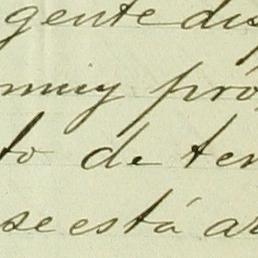 gente dis
muy pró
to de ter
se está ar